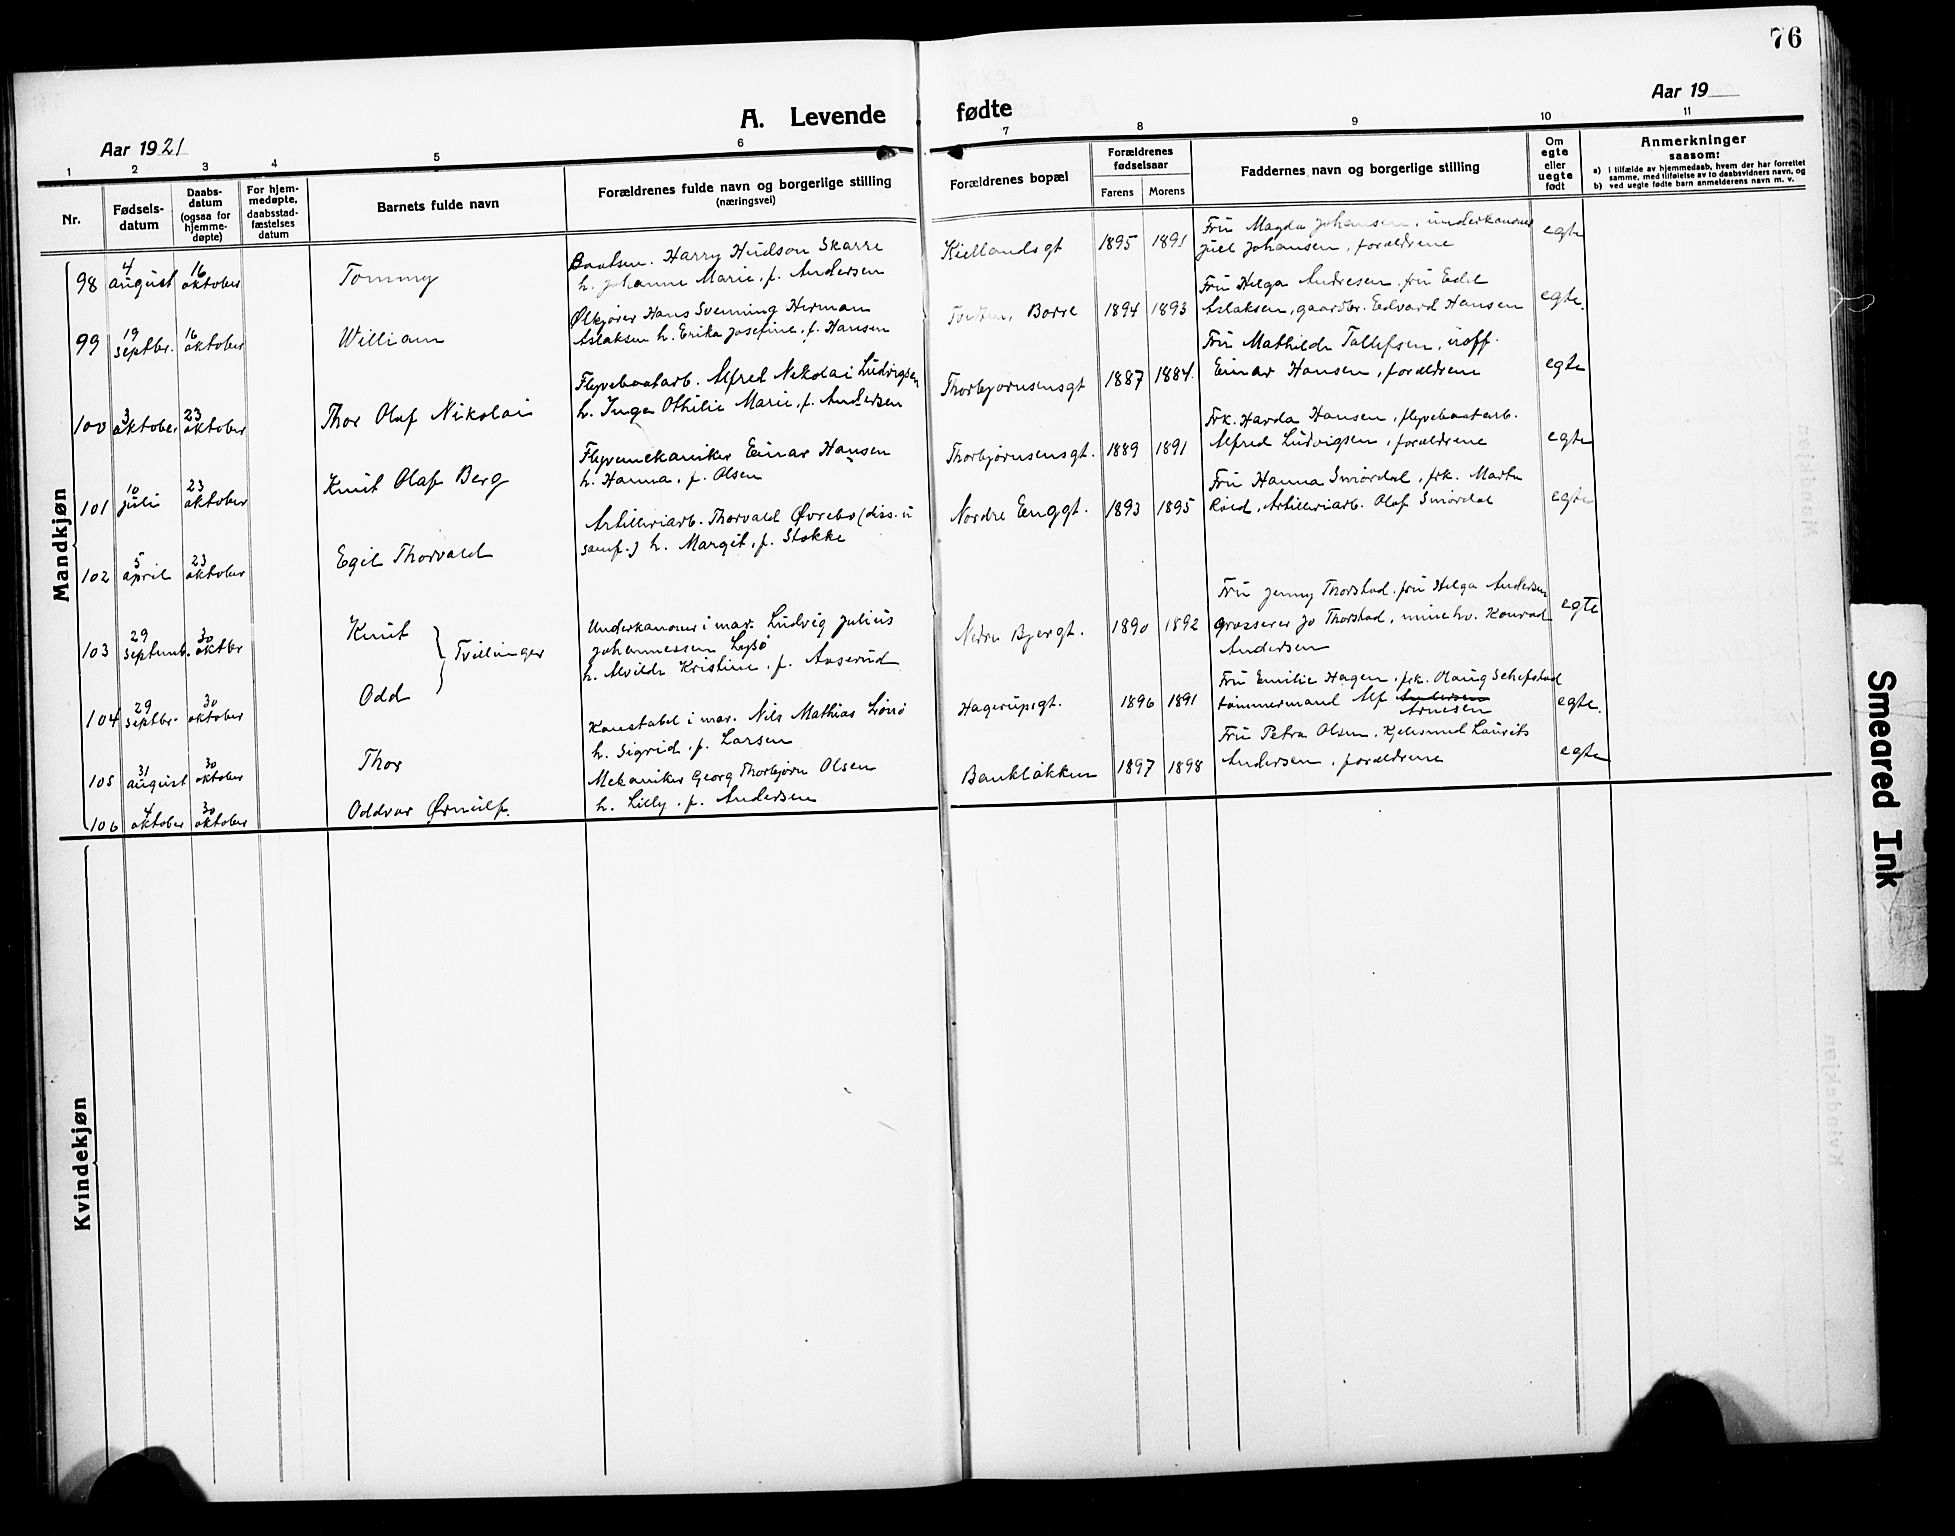 76
A. Levende fødte
Aar 1921
Aar 19
1 2 3 4 5 6 7 8 9 10 11
Nr.
Fødsels-
datum
Daabs-
datum
(ogsaa for
hjemme-
døpte)
For hjem-
medøpte,
daabsstad-
fæstelses
datum
Barnets fulde navn
Forældrenes fulde navn og borgerlige stilling
(næringsvei)
Forældrenes bopæl
Forældrenes
fødselsaar
Farens Morens
Faddernes navn og borgerlige stilling
Om
egte
eller
uegte
født
Anmerkninger
saasom:
a) i tilfælde av hjemmedaab, hvem der har forrettet
samme, med tilføielse av to daabsvidners navn, og
b) ved uegte fødte barn anmelderens navn m. v.
Mandkjøn
98
4 august
16 oktober
Tommy
Baatsm. Harry Hudson Skarre
h. Johanne Marie, f. Andersen
Kiellandsgt
1895 1891
Fru Magda Johansen, underkanoner
Juel Johansen, forældrene
egte
99
19 septbr.
16 oktober
William
Ølkjører Hans Svenning Herman
Aslaksen h. Erika Josefine, f. Hansen
Borre
1894 1893
Fru Helga Andresen, fru Edle
Aslaksen, gaardbr. Edvard Hansen
egte.
100
3 oktober
23 oktober
Thor Olaf Nikolai
Flyvebaatarb. Alfred Nikolai Ludvigsen
h. Inga Othilie Marie, f. Andersen
Thorbjørnsensgt
1887 1884.
Fru Mathilde Tollefsen, uoff.
Einar Hansen, forældrene
egte
101
10 juli
23 oktober
Knut Olaf Berg
Flyvemekaniker Einar Hansen
h. Hanna, f. Olsen
Thorbjørnsensgt.
1889 1891
Frk. Harda Hansen, flyvebaatarb.
Alfred Ludvigsen, forældrene
egte
102
5 april
23 oktober
Egil Thorvald
Artilleriarb. Thorvald Øvrebø (diss. u
samf.) h. Margit, f. Stokke
Nordre Enggt.
1893 1895
Fru Hanna Smørdal, frk. Marta
Røed, Artilleriarb. Olaf Smørdal
egte
103
29 septemb.
30 oktbr
Knut
Tvillinger
Underkanoner i mar. Ludvig Julius
Johannessen Lysø
h. Alvilde Kristine, f. Aaserud
Nedre Bjergt.
1890 1892
Fru Jenny Thorstad, fru Helga Andersen
grosserer Jo Thorstad, minehv. Konrad
Andersen
egte
104
29 septbr.
30 oktober
Odd
105
31 august
30 oktober
Thor
Konstabel i mar. Nils Mathias Lønø
h. Sigrid, f. Larsen
Hagerupsgt.
1896 1891
Fru Emilie Hagen, frk. Olaug Schefstad
tømmermand Alf Andersen
Arnesen
egte.
106
4 oktober
30 oktober
Oddvar Ørnulf.
Mekaniker Georg Thorbjørn Olsen
h. Lilly, f. Andersen
Bankløkken
1897 1898
Fru Petra Olsen, Kjelsmed Laurits
Andersen, forældrene
egte
Kvindekjøn
Smeared Ink